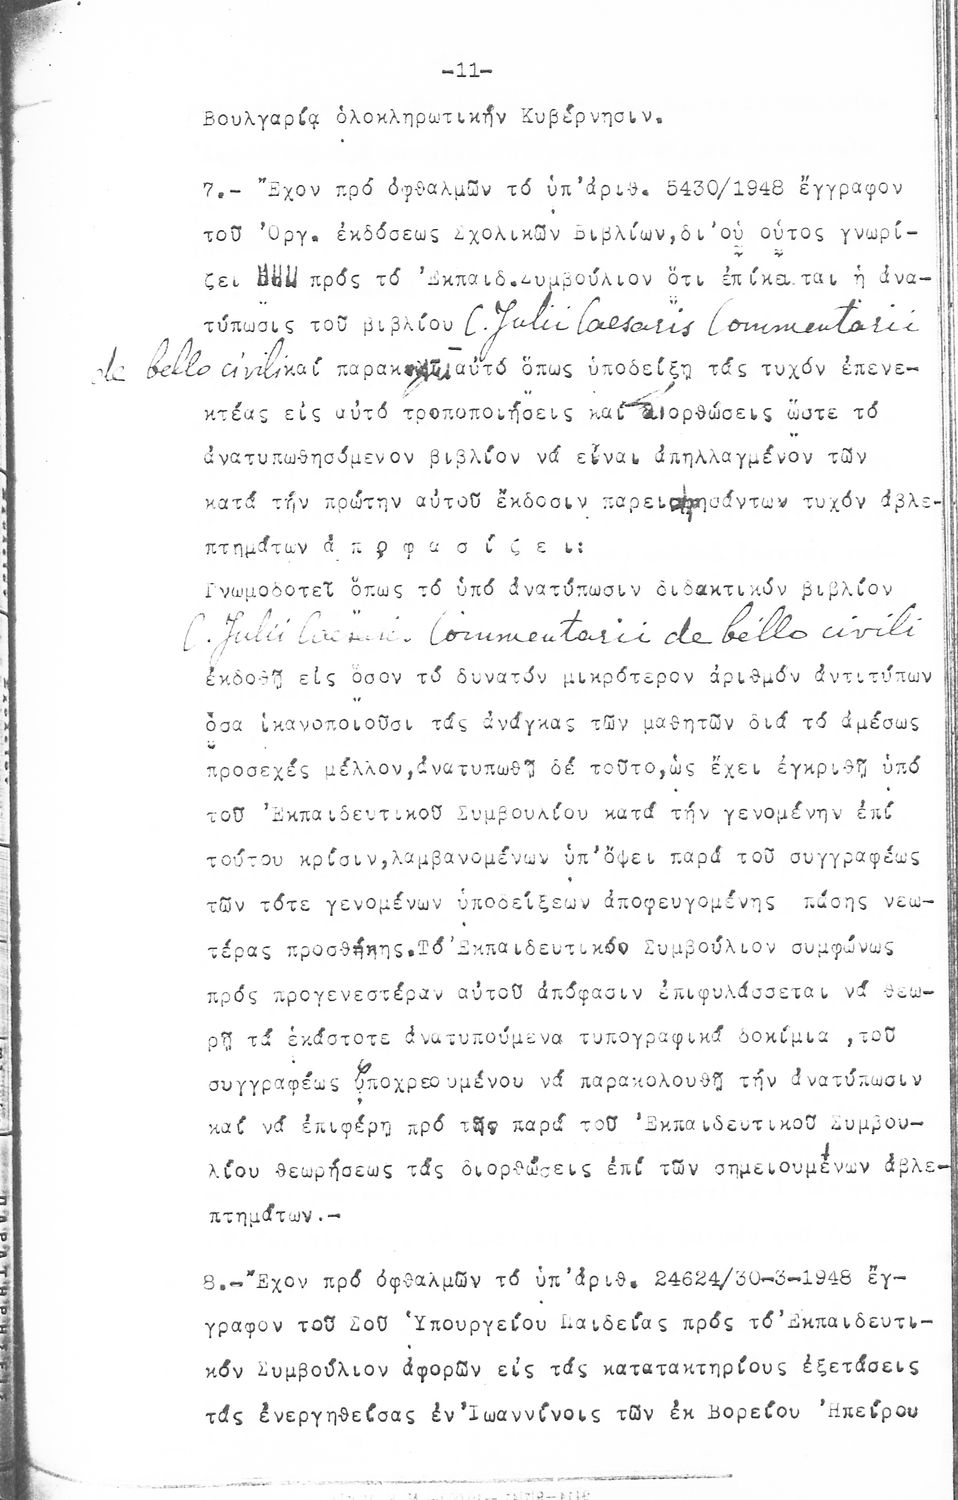 -11-
Βουλγαρίᾳ ὁλοκληρωτικήν Κυβέρνησιν.
7.- Ἔχον πρό ὀφθαλμῶν τό ὑπ'ἀριθ. 5430/1948 ἔγγραφον
τοῦ Ὀργ. ἐκδόσεως Σχολικῶν Βιβλίων,δι'οὗ οὗτος γνωρί-
ζει πρός τό Ἐκπαιδ.Συμβούλιον ὅτι ἐπίκειται ἡ ἀνα-
τύπωσις τοῦ βιβλίου C. Julii Caesaris Commentarii
de bello civili καί παρακαλεῖ αὐτό ὅπως ὑποδείξῃ τάς τυχόν ἐπενε-
κτέας εἰς αὐτό τροποποιήσεις καί διορθώσεις ὥστε τό
ἀνατυπωθησόμενον βιβλίον νά εἶναι ἀπηλλαγμένον τῶν
κατά τήν πρώτην αὐτοῦ ἔκδοσιν παρεισφρησάντων τυχόν ἀβλε-
πτημάτων ἀ π ο φ α σ ί ζ ε ι:
Γνωμοδοτεῖ ὅπως τό ὑπό ἀνατύπωσιν διδακτικόν βιβλίον
C. Julii Caesaris Commentarii de bello civili
ἐκδοθῇ εἰς ὅσον τό δυνατόν μικρότερον ἀριθμόν ἀντιτύπων
ὅσα ἱκανοποιοῦσι τάς ἀνάγκας τῶν μαθητῶν διά τό ἀμέσως
προσεχές μέλλον,ἀνατυπωθῇ δέ τοῦτο,ὡς ἔχει ἐγκριθῇ ὑπό
τοῦ Ἐκπαιδευτικοῦ Συμβουλίου κατά τήν γενομένην ἐπί
τούτου κρίσιν,λαμβανομένων ὑπ'ὄψει παρά τοῦ συγγραφέως
τῶν τότε γενομένων ὑποδείξεων ἀποφευγομένης πάσης νεω-
τέρας προσθήκης.Τό Ἐκπαιδευτικόν Συμβούλιον συμφώνως
πρός προγενεστέραν αὐτοῦ ἀπόφασιν ἐπιφυλάσσεται νά θεω-
ρῇ τά ἑκάστοτε ἀνατυπούμενα τυπογραφικά δοκίμια ,τοῦ
συγγραφέως ὑποχρεουμένου νά παρακολουθῇ τήν ἀνατύπωσιν
καί νά ἐπιφέρῃ πρό τῆς παρά τοῦ Ἐκπαιδευτικοῦ Συμβου-
λίου θεωρήσεως τάς διορθώσεις ἐπί τῶν σημειουμένων ἀβλε-
πτημάτων.-
8.-Ἔχον πρό ὀφθαλμῶν τό ὑπ'ἀριθ. 24624/30-3-1948 ἔγ-
γραφον τοῦ Σοῦ Ὑπουργείου Παιδείας πρός τό Ἐκπαιδευτι-
κόν Συμβούλιον ἀφορῶν εἰς τάς κατατακτηρίους ἐξετάσεις
τάς ἐνεργηθείσας ἐν Ἰωαννίνοις τῶν ἐκ Βορείου Ἠπείρου